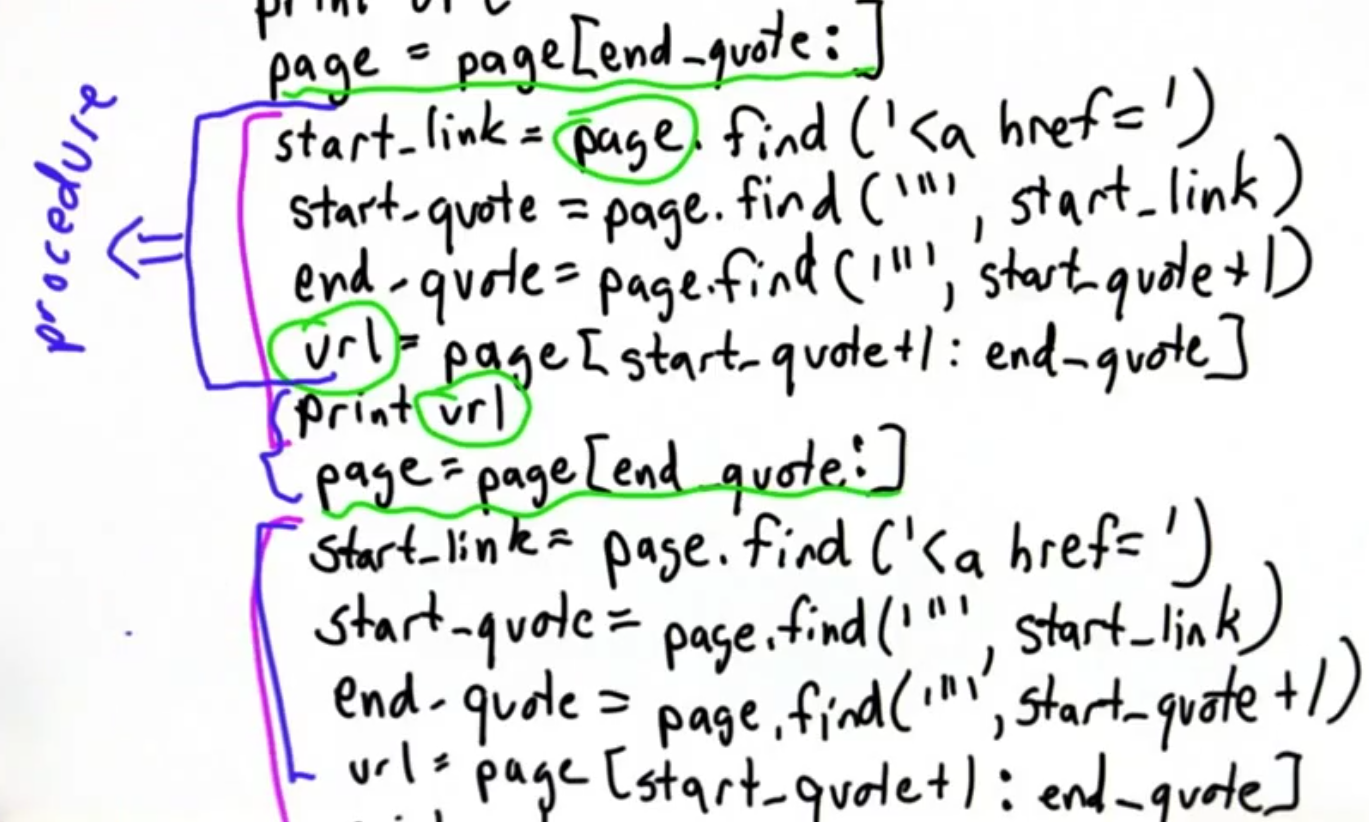 print url
page = page[end_quote:]
procedure
start_link = page.find('<a href=')
start_quote = page.find('"', start_link)
end_quote = page.find('"', start_quote+1)
url = page[start_quote+1:end_quote]
print url
page = page[end_quote:]
start_link = page.find('<a href=')
start_quote = page.find('"', start_link)
end_quote = page.find('"', start_quote+1)
url = page[start_quote+1:end_quote]